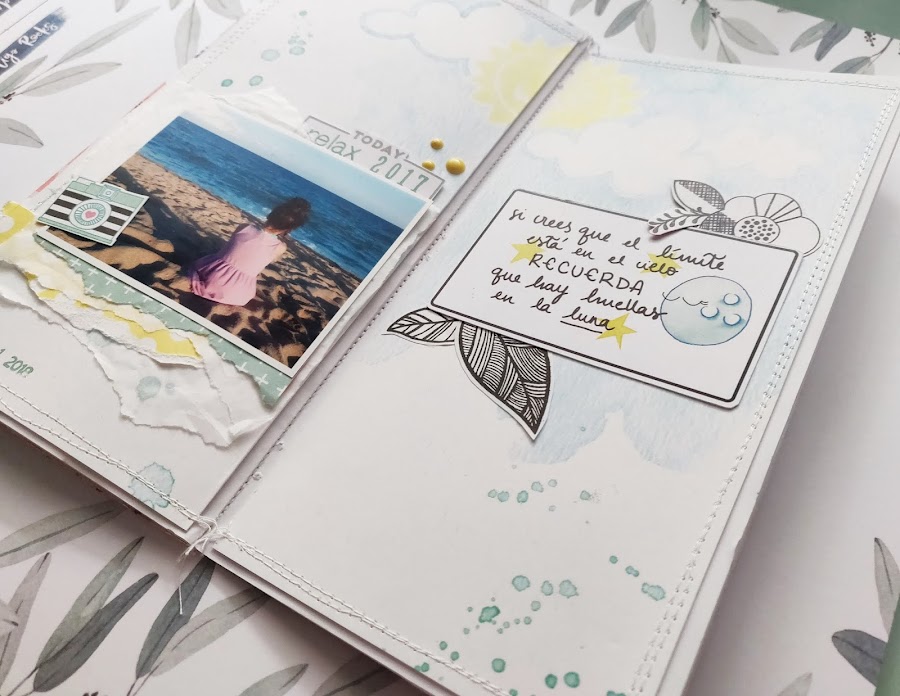 TODAY!
relax 2017
si crees que el límite
está en el cielo
RECUERDA
que hay huellas
en la luna
2018